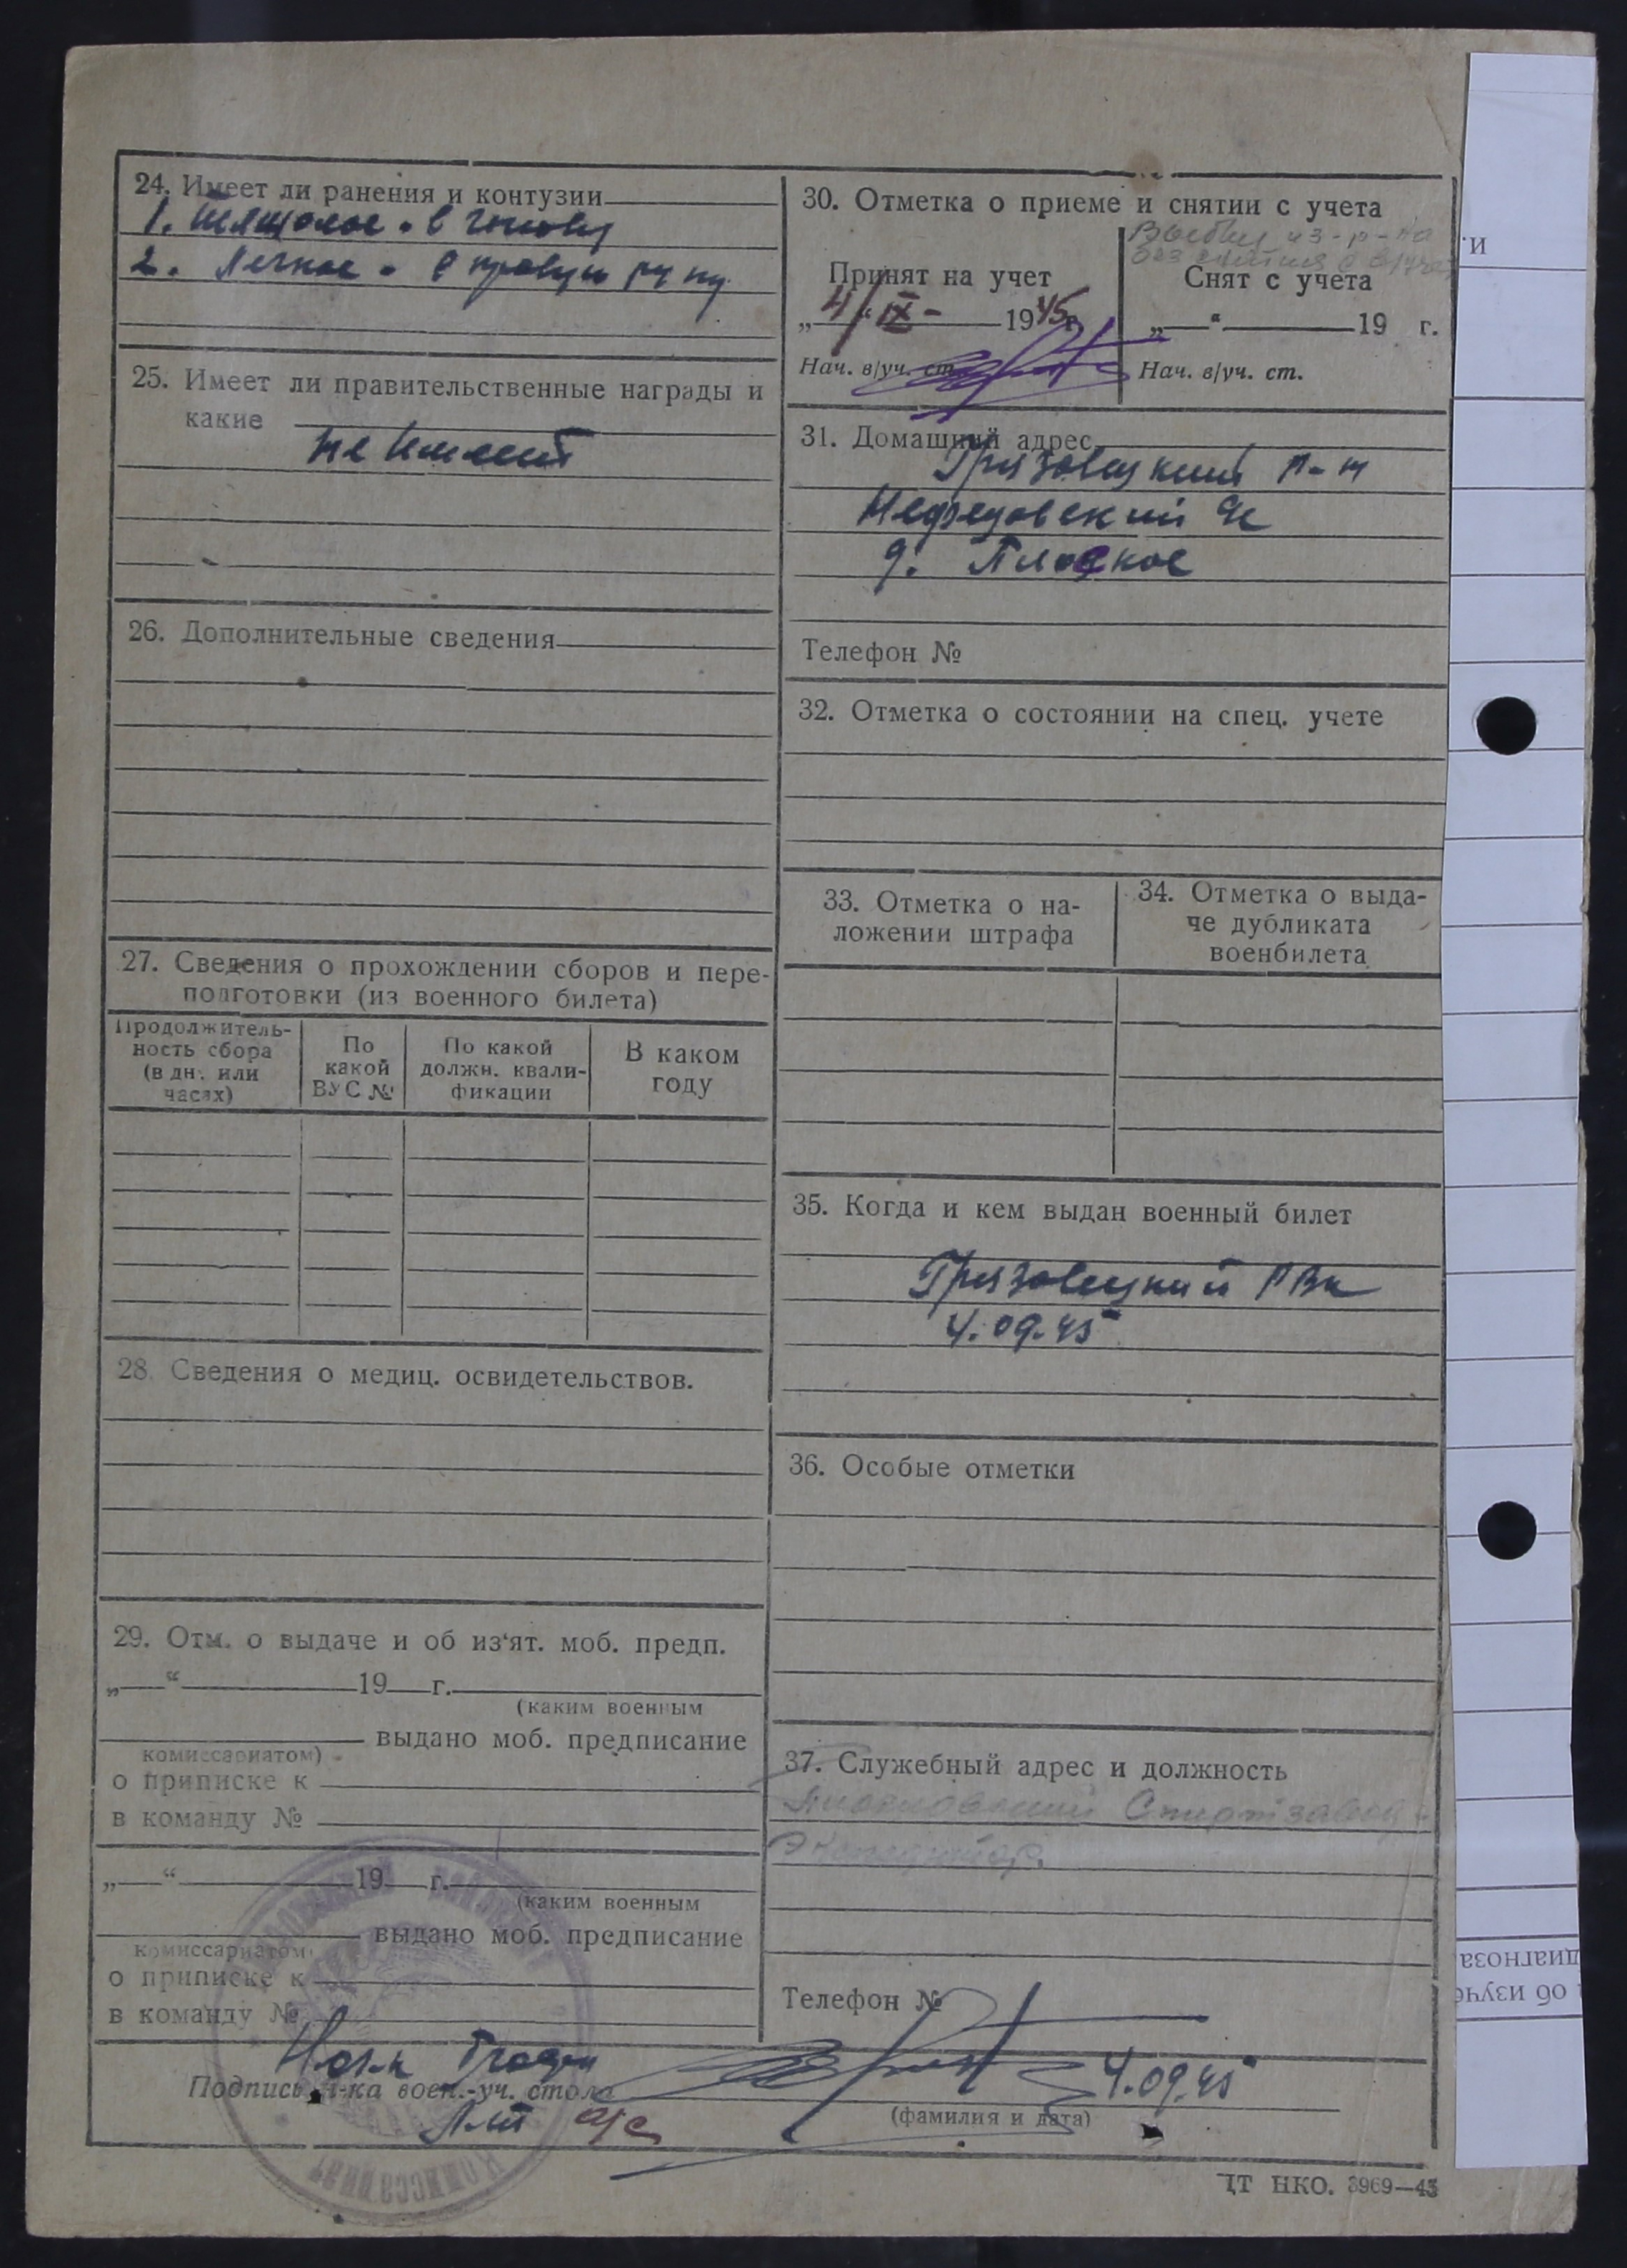 24. Имеет ли ранения и контузии
1. Тяжолое - в голову
2. Легкое - в правую руку
25. Имеет ли правительственные награды и
какие
не имеет
26. Дополнительные сведения
27. Сведения о прохождении сборов и пере-
подготовки (из военного билета)
Продолжитель-
ность сбора
(в дн. или
часах)
По
какой
ВУС №
По какой
должн. квали-
фикации
В каком
году
28. Сведения о медиц. освидетельствов.
29. Отм. о выдаче и об из‘ят. моб. предп.
„ “ 19 г.
(каким военным
выдано моб. предписание
комиссариатом)
о приписке к
в команду №
„ “ 19 г.
(каким военным
выдано моб. предписание
комиссариатом)
о приписке к
в команду №
30. Отметка о приеме и снятии с учета
Выбыл из р-на
без снятия с в/уч.
Принят на учет
„4“ IX - 1945 г.
Нач. в/уч. ст.
Снят с учета
„ “ 19 г.
Нач. в/уч. ст.
31. Домашний адрес
Грязовецкий р-н
с/с
д. Плоское
Телефон №
32. Отметка о состоянии на спец. учете
33. Отметка о на-
ложении штрафа
34. Отметка о выда-
че дубликата
военбилета
35. Когда и кем выдан военный билет
Грязовецкий РВк
4.09.45
36. Особые отметки
37. Служебный адрес и должность
Спиртзавод
Телефон №
Подпись н-ка воен.-уч. стола
4.09.45
(фамилия и дата)
Л-нт а/с
комиссариат
ЦТ НКО. 3969—43
и.
диагноза
об изуче